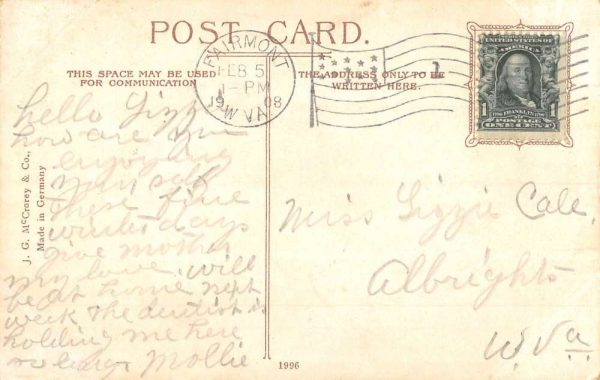 POST CARD.
THIS SPACE MAY BE USED
FOR COMMUNICATION
THE ADDRESS ONLY TO BE
WRITTEN HERE.
FAIRMONT
FEB 5
1-PM
1908
W.VA.
1
UNITED STATES OF
AMERICA
FRANKLIN
1
POSTAGE
ONE CENT
1
J. G. McCrorey & Co.,
Made in Germany
hello Lizzie
how are you
enjoying
your self
these fine
winter days
give mother
my love. will
be at home next
week the dentist is
holding me here
so long Mollie
Miss Lizzie Cale,
Albrights
W. Va
1996